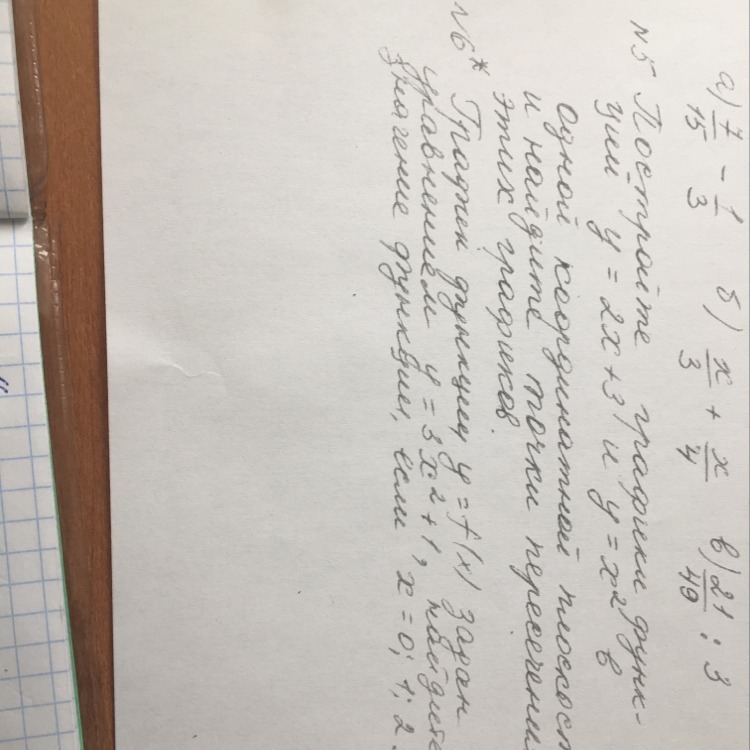 а) 7/15 - 1/3 б) x/3 + x/4 в) 21/49 : 3
№5 Постройте графики функ-
ций y = 2x + 3 и y = x² в
одной координатной плоскост
и найдите точки пересечени
этих графиков.
№6* График функции y = f(x) задан
уравнением y = 3x² + 1, найдите
значение функции, если x = 0; 1; 2.